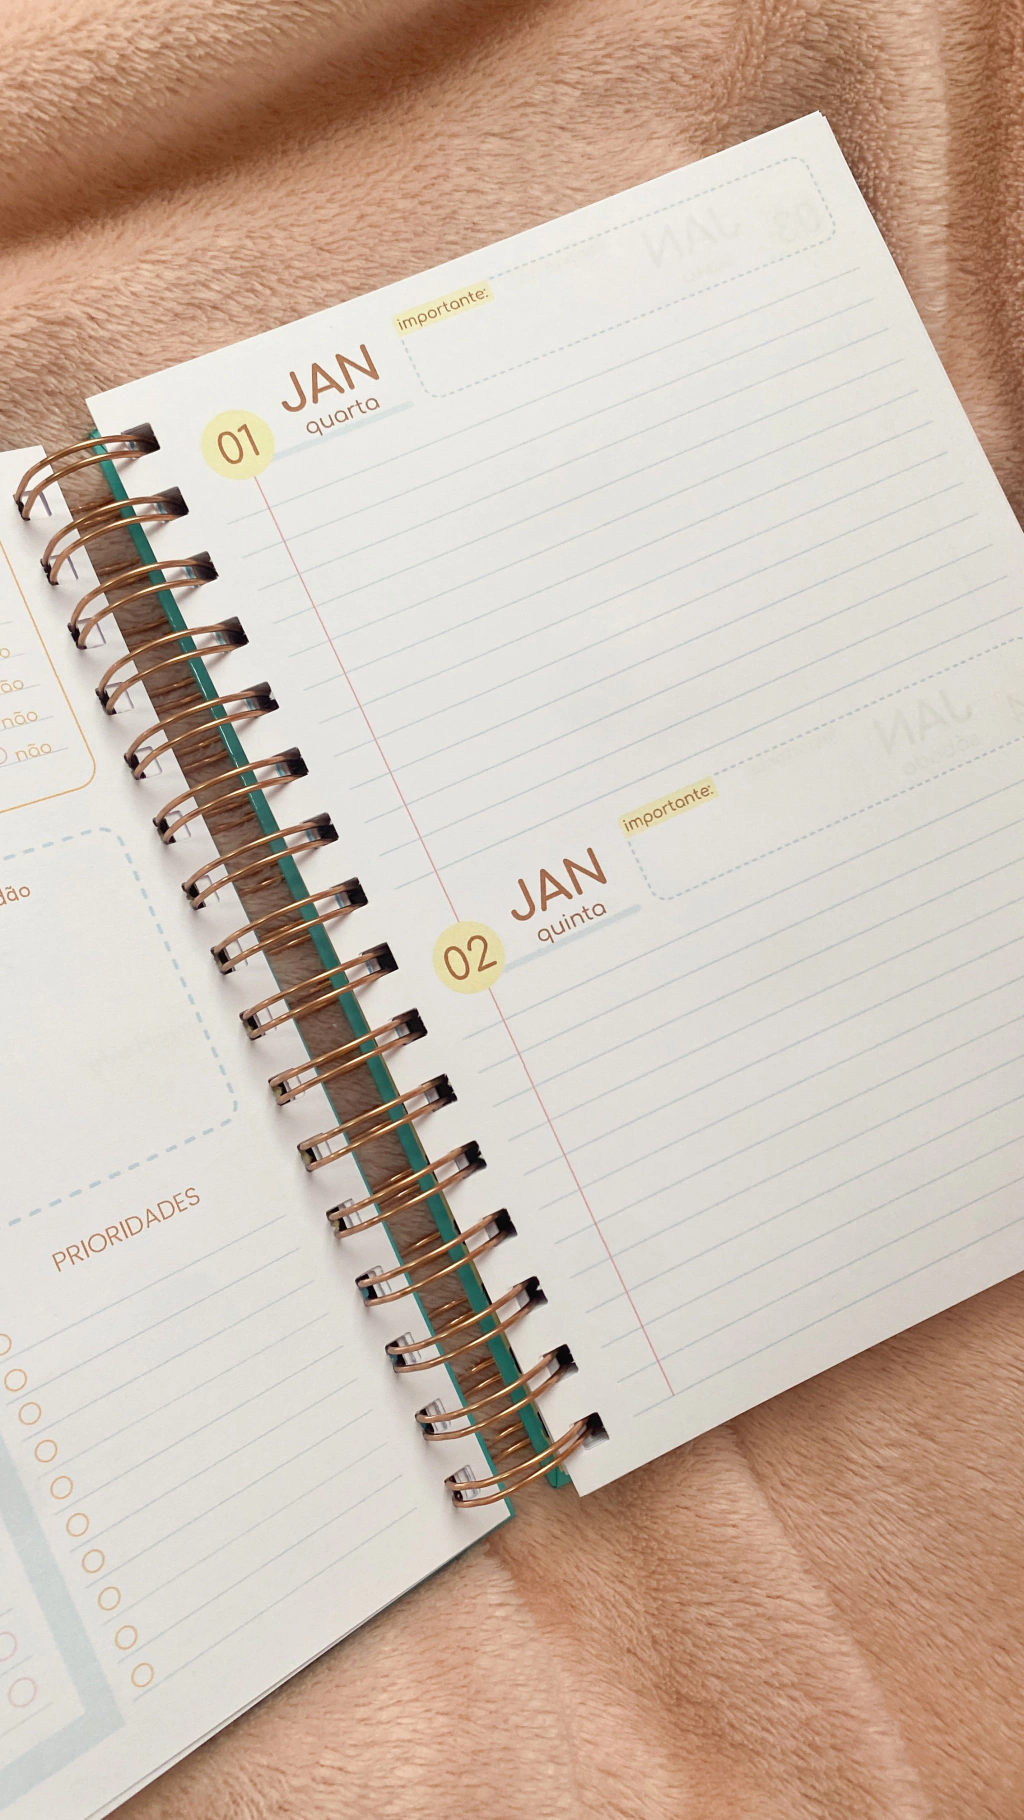 não
não
PRIORIDADES
importante:
JAN
quarta
01
importante:
JAN
quinta
02